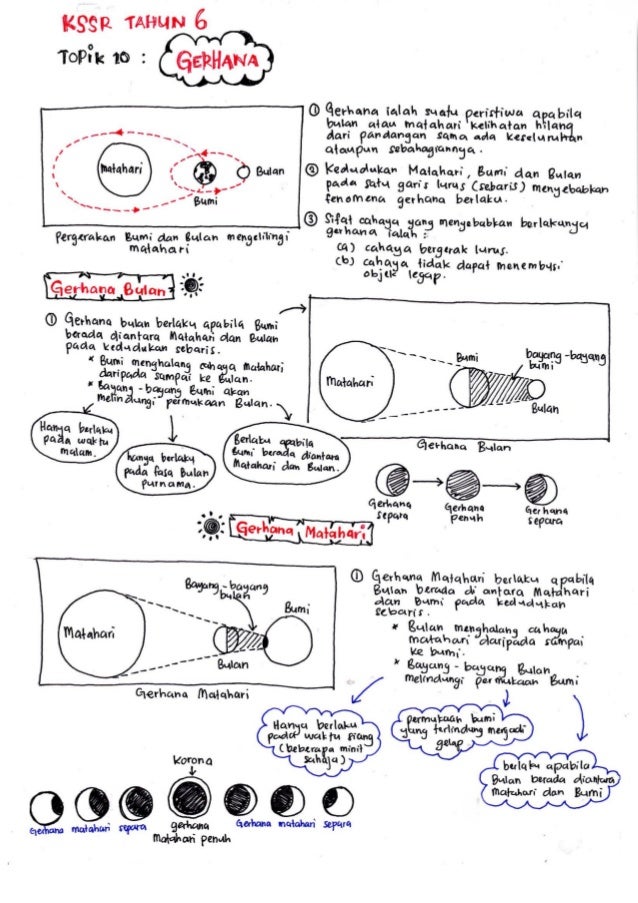 KSSR TAHUN 6
TOPIK 10 : GERHANA
Matahari
Bumi
Bulan
Pergerakan Bumi dan Bulan mengelilingi
matahari
① Gerhana ialah suatu peristiwa apabila
bulan atau matahari kelihatan hilang
dari pandangan sama ada keseluruhan
ataupun sebahagiannya.
② Kedudukan Matahari, Bumi dan Bulan
pada satu garis lurus (sebaris) menyebabkan
fenomena gerhana berlaku.
③ Sifat cahaya yang menyebabkan berlakunya
gerhana ialah :
(a) cahaya bergerak lurus.
(b) cahaya tidak dapat menembusi
objek legap.
Gerhana Bulan
① Gerhana bulan berlaku apabila Bumi
berada diantara Matahari dan Bulan
pada kedudukan sebaris.
* Bumi menghalang cahaya Matahari
daripada sampai ke Bulan.
* Bayang - bayang Bumi akan
melindungi permukaan Bulan.
Hanya berlaku
pada waktu
malam.
hanya berlaku
pada fasa Bulan
purnama.
Berlaku apabila
Bumi berada diantara
Matahari dan Bulan.
Matahari
Bumi
bayang-bayang
bumi
Bulan
Gerhana Bulan
Gerhana
separa
Gerhana
penuh
Gerhana
separa
Gerhana Matahari
Matahari
Bayang-bayang
bulan
Bumi
Bulan
Gerhana Matahari
① Gerhana Matahari berlaku apabila
Bulan berada di antara Matahari
dan Bumi pada kedudukan
sebaris.
* Bulan menghalang cahaya
matahari daripada sampai
ke bumi.
* Bayang - bayang Bulan
melindungi permukaan Bumi
Hanya berlaku
pada waktu siang
(beberapa minit
sahaja)
permukaan bumi
yang terlindung menjadi
gelap
berlaku apabila
Bulan berada diantara
Matahari dan Bumi
Korona
Gerhana matahari separa
gerhana
Matahari penuh
Gerhana matahari separa